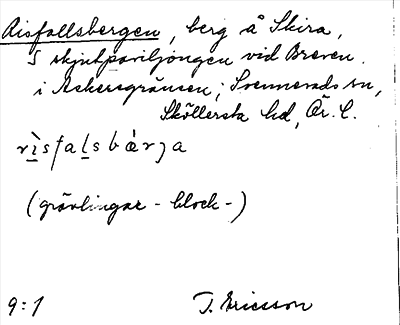 Risfallsbergen, berg å Skira,
S skjutpaviljongen vid Breven.
i Askersgränsen; Svennevads sn,
Sköllersta hd, Ör. l.
rìsfalsbærja
(grävlingar - block -)
9:1 T. Ericsson